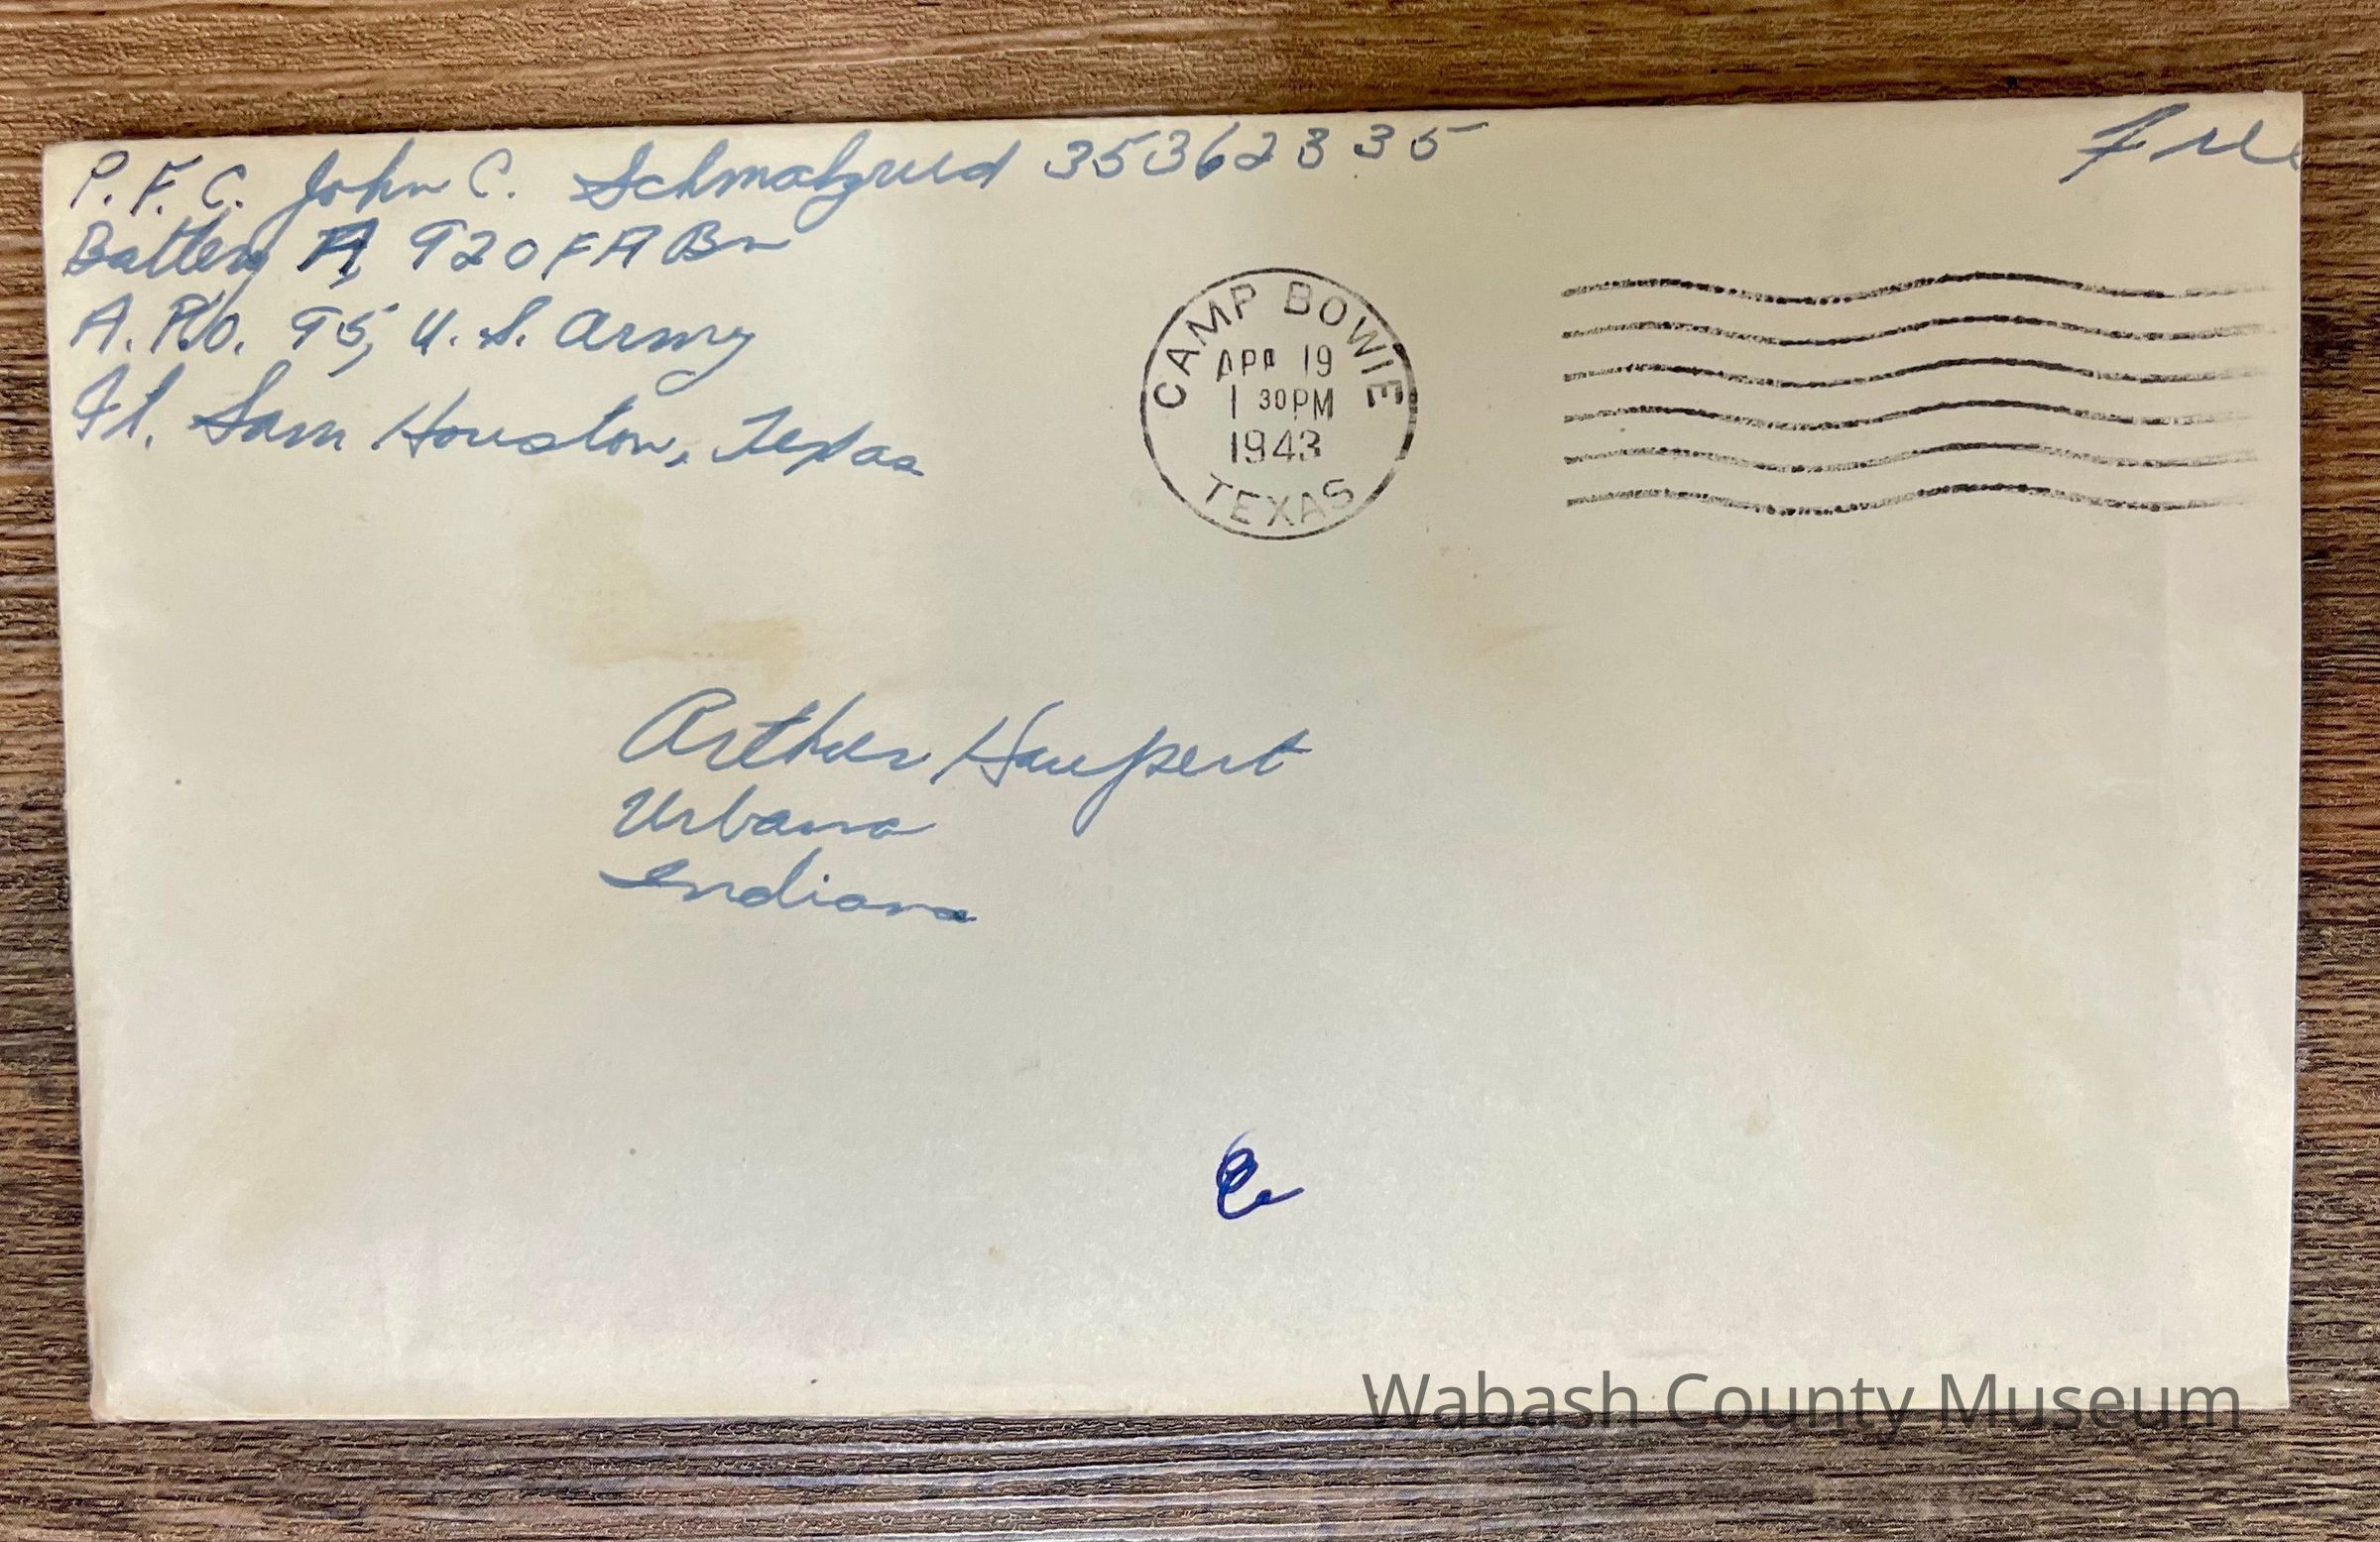 P.F.C. John C. Schmalzried 35362335
Free
Battery A, 920 FA Bn
A.P.O. 95, U.S. Army
Ft. Sam Houston, Texas
CAMP BOWIE
APR 19
1 30PM
1943
TEXAS
Arthur Haupert
Urbana
Indiana
Wabash County Museum